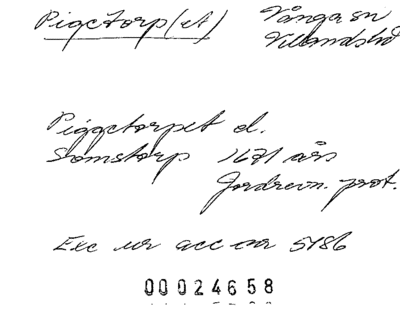 Pigetorp(et) Vånga sn
Villandshd
Piggetorpet el.
Somstorp 1671 års
Jordrevn. prot.
Exc ur acc nr 5186
00024658